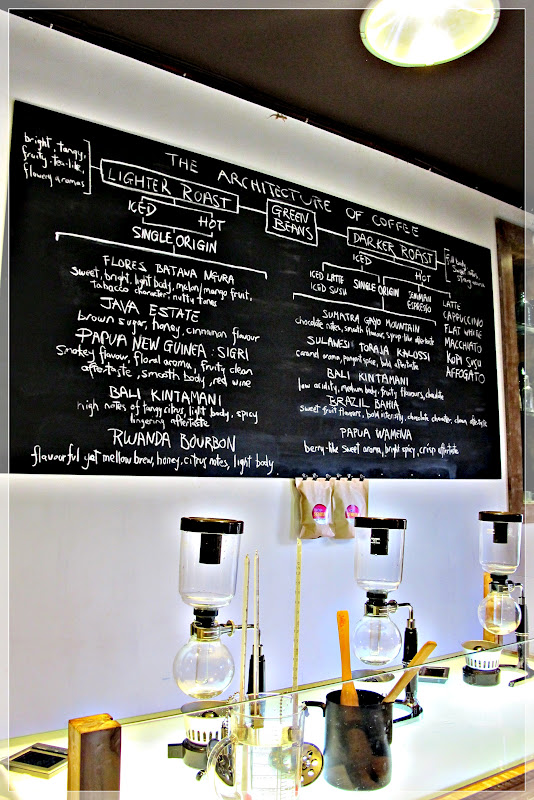 THE ARCHITECTURE OF COFFEE
bright, tangy,
fruity tea-like,
flowery aromas
LIGHTER ROAST
ICED
HOT
SINGLE ORIGIN
FLORES BATAWA NGURA
sweet, bright, light body, melon/mango fruit,
tobacco character, nutty tones
JAVA ESTATE
brown sugar, honey, cinnamon flavour
PAPUA NEW GUINEA: SIGRI
smokey flavour, floral aroma, fruity clean
aftertaste, smooth body, red wine
BALI KINTAMANI
high notes of tangy citrus, light body, spicy
lingering aftertaste
RWANDA BOURBON
flavourful yet mellow brew, honey, citrus notes, light body
GREEN
BEANS
DARKER ROAST
Full body,
ICED
HOT
ICED LATTE
ICED SUSU
SINGLE ORIGIN
ESPRESSO
LATTE
CAPPUCCINO
FLAT WHITE
MACCHIATO
KOPI SUSU
AFFOGATO
SUMATRA GAYO MOUNTAIN
chocolate notes, smooth flavour, syrup-like aftertaste
SULAWESI TORAJA KALOSSI
caramel aroma, pungent spice, bold aftertaste
BALI KINTAMANI
low acidity, medium body, fruity flavours, chocolate
BRAZIL BAHIA
sweet fruit flavours, bold intensity, chocolate character, clean aftertaste
PAPUA WAMENA
berry-like sweet aroma, bright spicy, crisp aftertaste